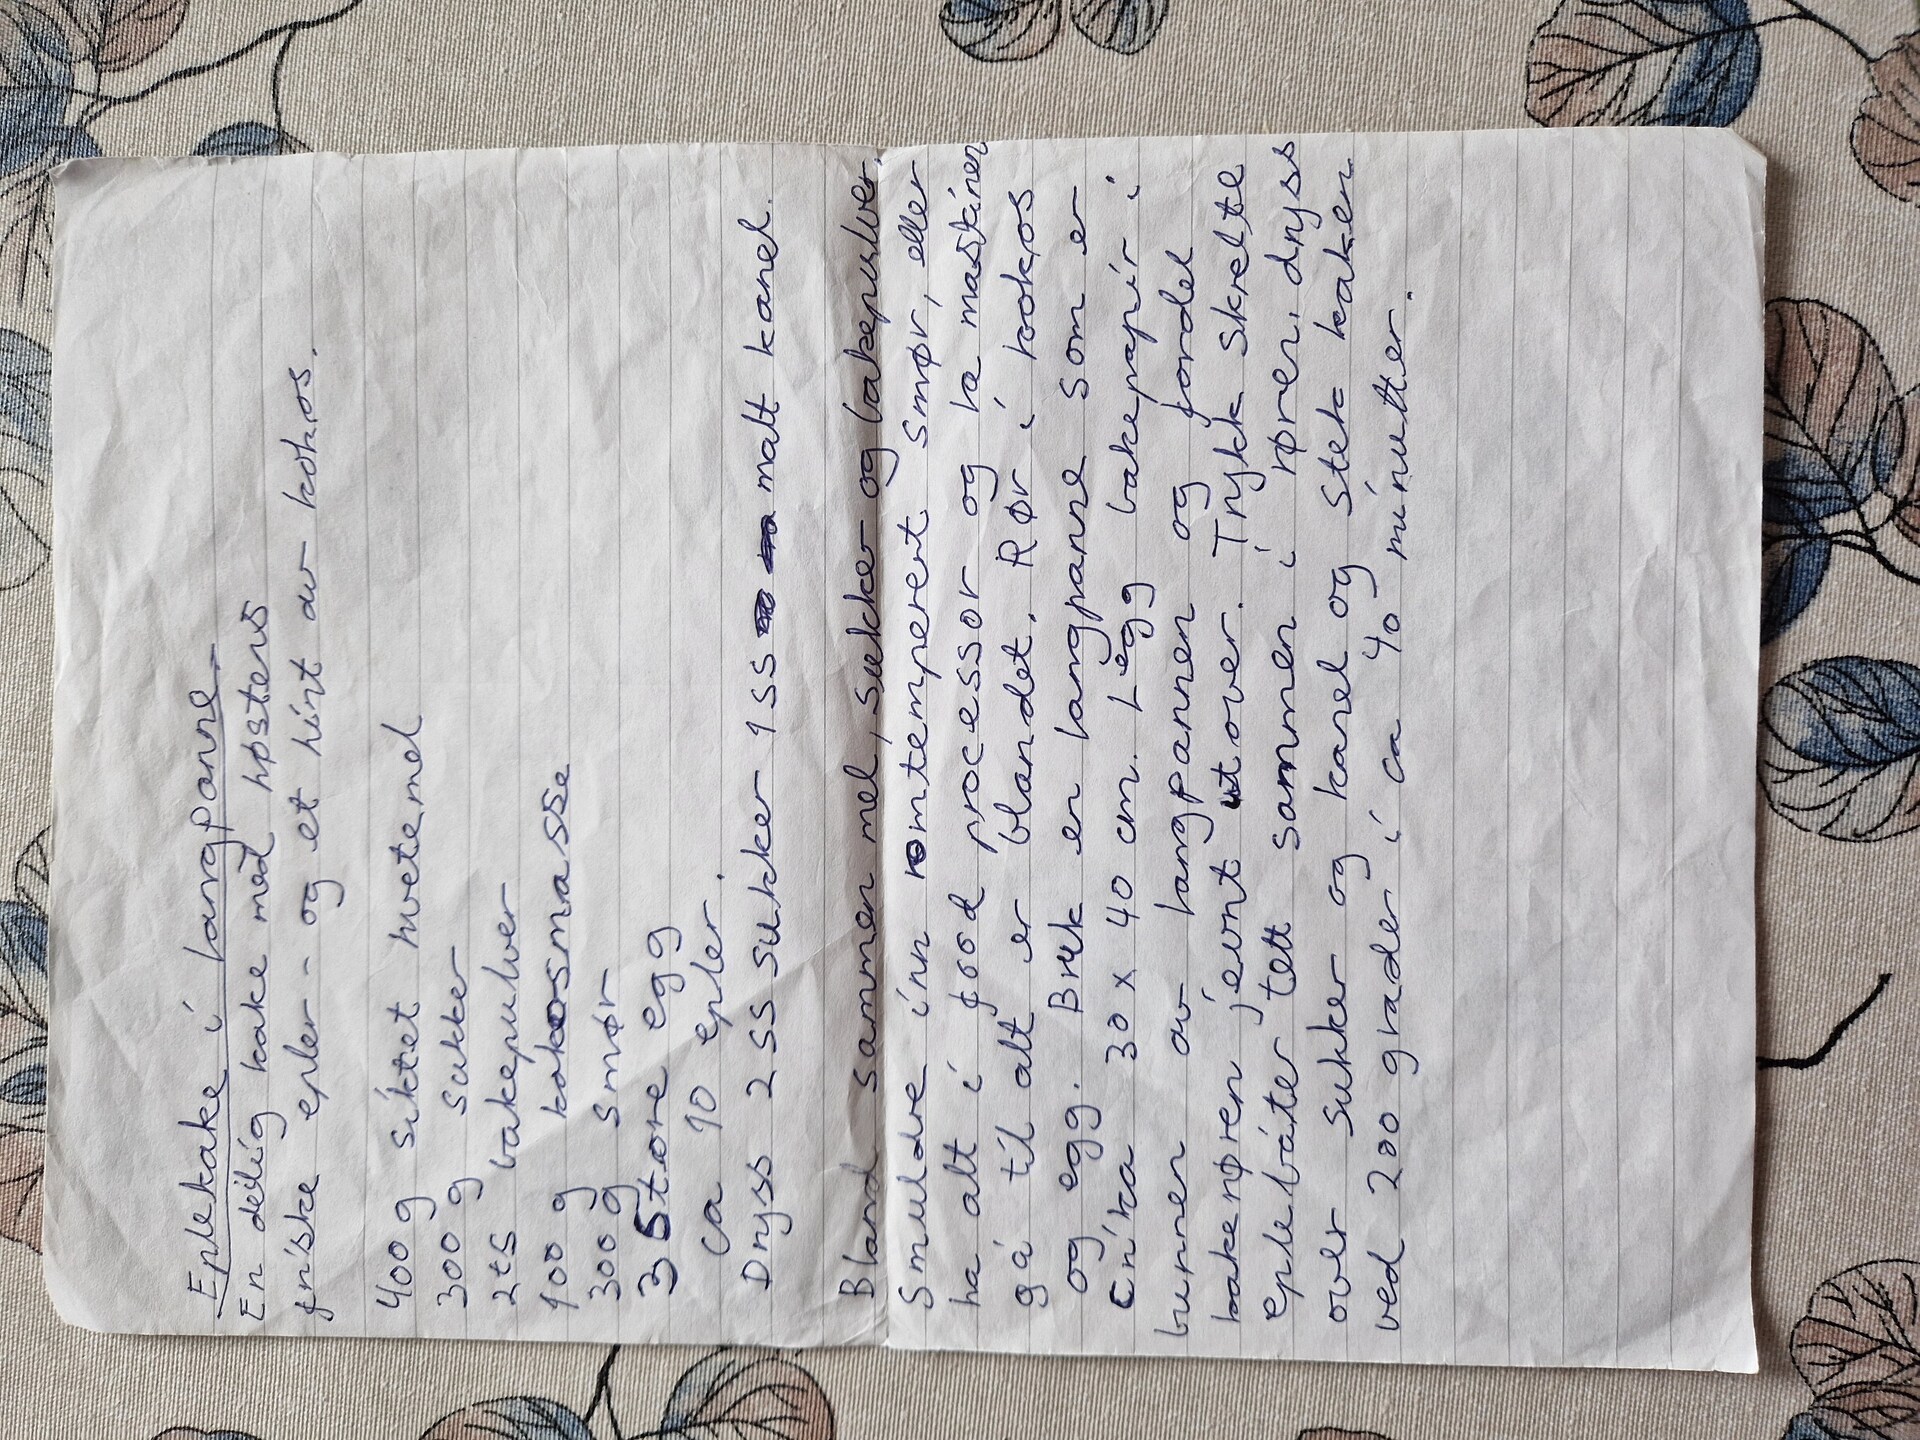 Eplekake i langpanne.
En deilig kake med høstens
friske epler - og et hint av kokos.
400 g siktet hvetemel
300 g sukker
2ts bakepulver
100 g kokosmasse
300 g smør
3 Store egg
ca 10 epler.
Dryss 2 ss sukker 1 ss malt kanel.
Bland sammen mel, sukker og bakepulver.
Smuldre inn romtemperert smør, eller
ha alt i food processor og la maskinen
gå til alt er blandet. Rør i kokos
og egg. Bruk en langpanne som er
cirka 30 x 40 cm. Legg bakepapir i
bunnen av langpannen og fordel
bakerøren jevnt utover. Trykk skrelte
eplebåter tett sammen i røren. dryss
over sukker og kanel og stek kaken
ved 200 grader i ca 40 minutter.